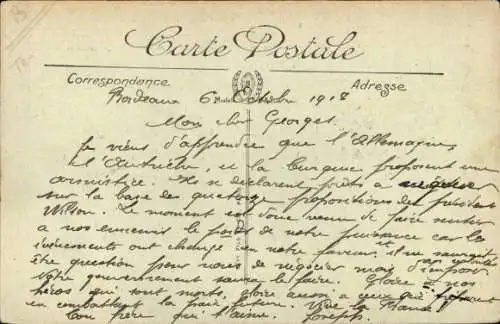 Carte Postale
Correspondance
Adresse
Bordeaux 6 Octobre 1918
Mon cher Georges.
Je viens d'apprendre que l'Allemagne,
l'Autriche, et la Turquie proposent une
armistice. Ils se déclarent prêts à
sur la base des quatorze propositions du président
Wilson. Le moment est donc venu de faire sentir
à nos ennemis le poids de notre puissance car les
événements ont changé en notre faveur, et il ne saurait
être question pour nous de négocier mais d'imposer
Notre gouvernement saura le faire. Gloire à nos
héros qui sont morts, gloire aussi à ceux qui
en combattant la paix future. Vive la France
Ton frère qui t'aime. Joseph.